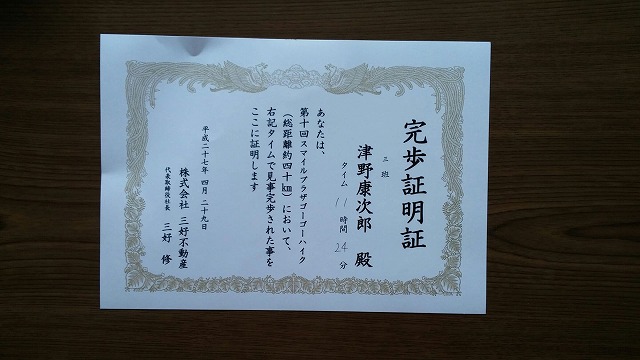 完歩証明証
三班
津野康次郎 殿
タイム 11時間24分
あなたは、
第十回スマイルプラザゴーゴーハイク
(総距離約四十km)において、
右記タイムで見事完歩された事を
ここに証明します
平成二十七年 四月 二十九日
株式会社 三好不動産
代表取締役社長 三好 修